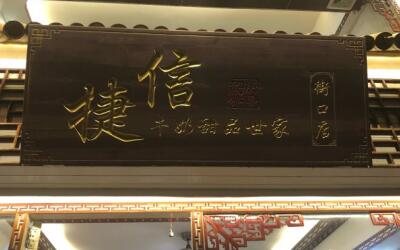 捷信
牛奶甜品世家
街口店